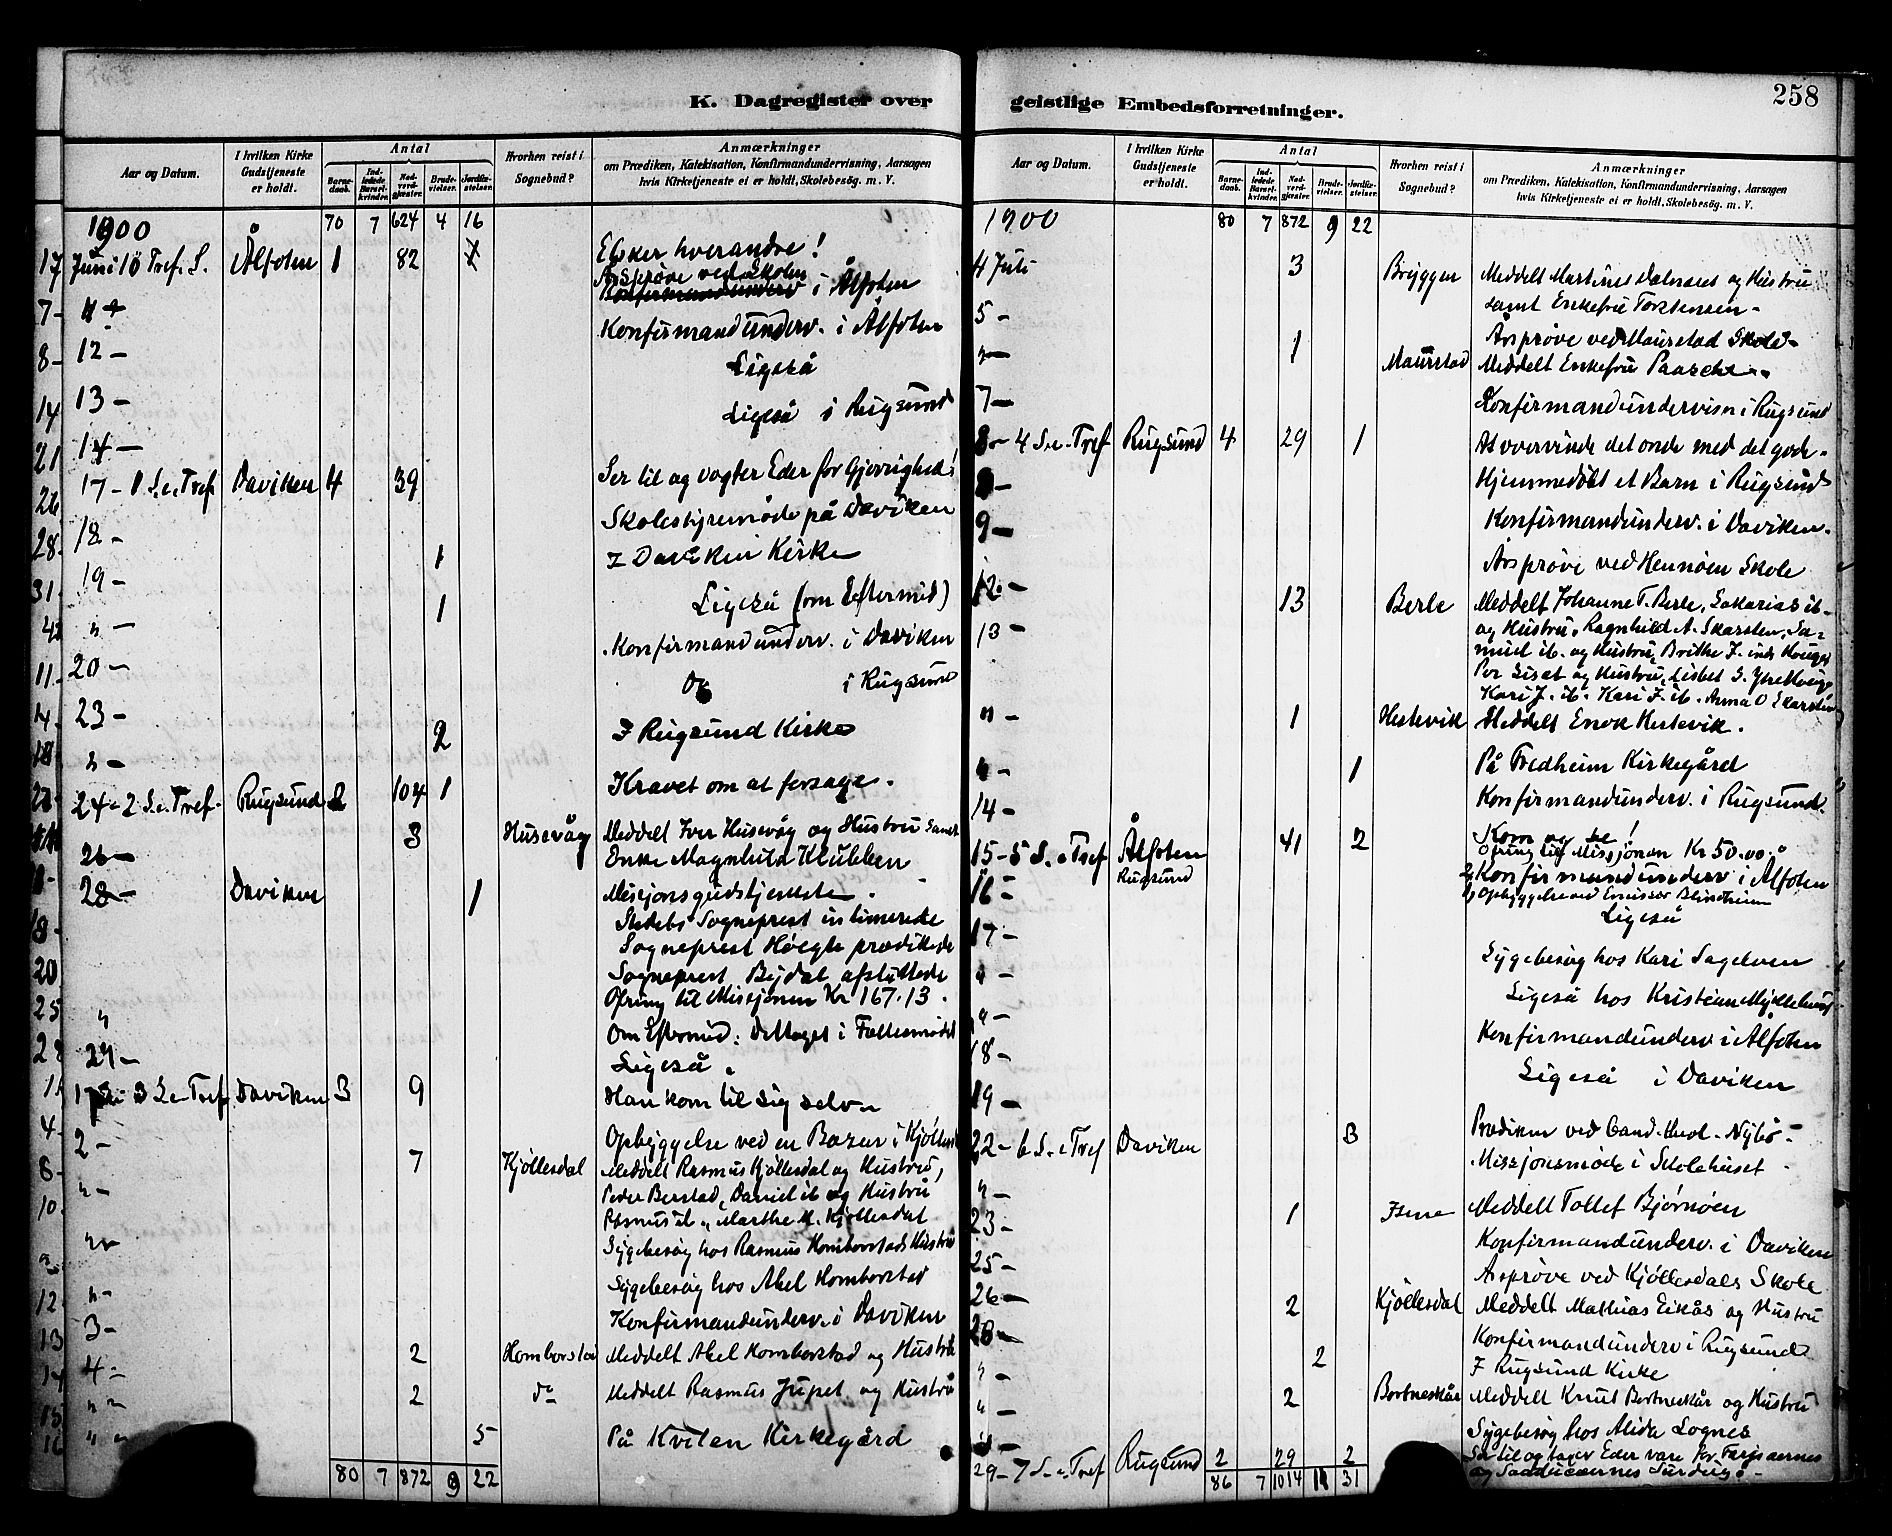 258
K. Dagregister over
geistlige Embedsforretninger.
Aar og Datum.
I hvilken Kirke Gudstjeneste er holdt.
Antal
Barnedaab.
Indledede Barselkvinder.
Nadverdgjæster.
Brudevielser.
Jordfæstelser.
Hvorhen reist i Sognebud?
Anmærkninger
om Prædiken, Katekisation, Konfirmandundervisning, Aarsagen
hvis Kirketjeneste ei er holdt, Skolebesög. m. V.
1900 70 7 624 4 16
Juni 10 Tref. S. Ålfoten 1 82 Elsker hverandre!
Årsprøve ved Skolen i Ålfoten
Konfirmandunderv. i Ålfoten
12 - Ligeså
13 - Ligeså i Rugsund
14 -
17 - 1 S. e. Tref Daviken 4 39 Ser til og vogter Eder for Gjerrighed!
Skolestyremøde på Daviken
18 - 1 I Daviken Kirke
19 - 1 Ligeså (om Eftermid)
" - Konfirmandunderv. i Daviken
20 - Do i Rugsund
23 - 2 I Rugsund Kirke
" -
24 - 2 S. e. Tref. Rugsund 104 1 Kravet om at forsage.
3 Husevåg Meddelt Iver Husevåg og Hustru samt
26 - Enke Magnhild Klubben
28 - Daviken 1 Missjonsgudstjeneste.
Stedets Sogneprest intimerede
Sogneprest Høegh prædikede
Sogneprest Bejdal afsluttede
Ofring til Missjonen Kr 167.13.
" Om Eftermid: Deltaget i Fællesmødet
29 - Ligeså
1 Juli 3 S. e. Tref Daviken 3 9 Han kom til sig selv
2 - Opbyggelse ved en Bazar i Kjølles
7 Kjøllesdal Meddelt Rasmus Kjøllesdal og Hustru,
" - Peder Berstad, Daniel ib og Hustru
Rasmus ib, Marthe M. Kjøllesdal
" - Sygebesøg hos Rasmus Homborstads Hustru
" - Sygebesøg hos Abel Homborstad
3 - Konfirmandunderv. i Daviken
4 - 2 Homborstad Meddelt Abel Homborstad og Hustru
" - 2 do Meddelt Rasmus Jupet og Hustru
" - 5 På Kvilen Kirkegård
80 7 872 9 22
Aar og Datum.
I hvilken Kirke Gudstjeneste er holdt.
Antal
Barnedaab.
Indledede Barselkvinder.
Nadverdgjæster.
Brudevielser.
Jordfæstelser.
Hvorhen reist i Sognebud?
Anmærkninger
om Prædiken, Katekisation, Konfirmandundervisning, Aarsagen
hvis Kirketjeneste ei er holdt, Skolebesög. m. V.
1900 80 7 872 9 22
4 Juli 3 Bryggen Meddelt Martines Dalsæes og Hustru
samt Enkefru Torstensen -
5 - Årsprøve ved Maurstad Skole -
" - 1 Maurstad Meddelt Enkefru Paasche -
7 - Konfirmandundervisn i Rugsund
8 - 4 S. e. Tref Rugsund 4 29 1 At overvinde det onde med det gode.
Hjemmedøbt et Barn i Rugsund
9 - Konfirmandunderv. i Daviken.
Årsprøve ved Hennøen Skole
12 - 13 Berle Meddelt Johanne T. Berle, Sakarias ib-
13 - og Hustru, Ragnhild A. Skarsten, Sa-
muel ib. og Hustru, Brithe J. indr
Per Siset og Hustru, Lisbet S.
Kari J. ib. Kari J. ib. Anna O Skarsten
" - 1 Hestevik Meddelt Enok Hestevik.
" - 1 På Fredheim Kirkegård
14 - Konfirmandunderv. i Rugsund.
15 - 5 S. e Tref Ålfoten 41 2 Kom og se!
Ofring til Missjonen Kr 50.00.
16 - Rugsund 2) Konfirmandunderv i Ålfoten
1) Opbyggelse ved Emissær Blindheim
17 - Ligeså
" - Sygebesøg hos Kari Sagelven
" - Ligeså hos Kristian
18 - Konfirmandunderv i Ålfoten
19 - Ligeså i Daviken
22 - 6 S. e Tref Daviken 3 Prædiken ved Cand. theol. Nybø -
" - Missjonsmøde i Skolehuset
23 - 1 Isene Meddelt Tollef Bjørnøen
25 - Konfirmandunderv. i Daviken
26 - Årsprøve ved Kjøllesdals Skole
2 Kjøllesdal Meddelt Mathias Eikås og Hustru
28 - Konfirmandunderv i Rugsund
" - 2 I Rugsund Kirke
" - 2 Bortneskår Meddelt Knut Bortneskår og Hustru
" - Sygebesøg hos Alida Sognes
29 - 7 S. e Tref Rugsund 2 29 2 Se til og tager Eder vare for Farisæernes
og Sadducæernes Surdeig.
86 7 1014 11 31